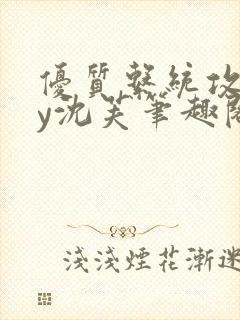 優質繫統攻
y沈芙筆趣閣
淺淺煙花漸迷